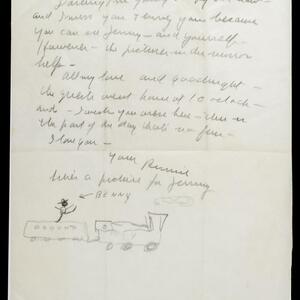 and I miss you - I envy you because
you can see Jenny - and yourself -
However - the pictures in the mirror
help -
All my love and goodnight -
the guests went home at 10 o'clock -
and - I wish you were here - this is
the part of the day that's no fun -
I love you -
Your Ronnie
here's a picture for Jenny
BENNY